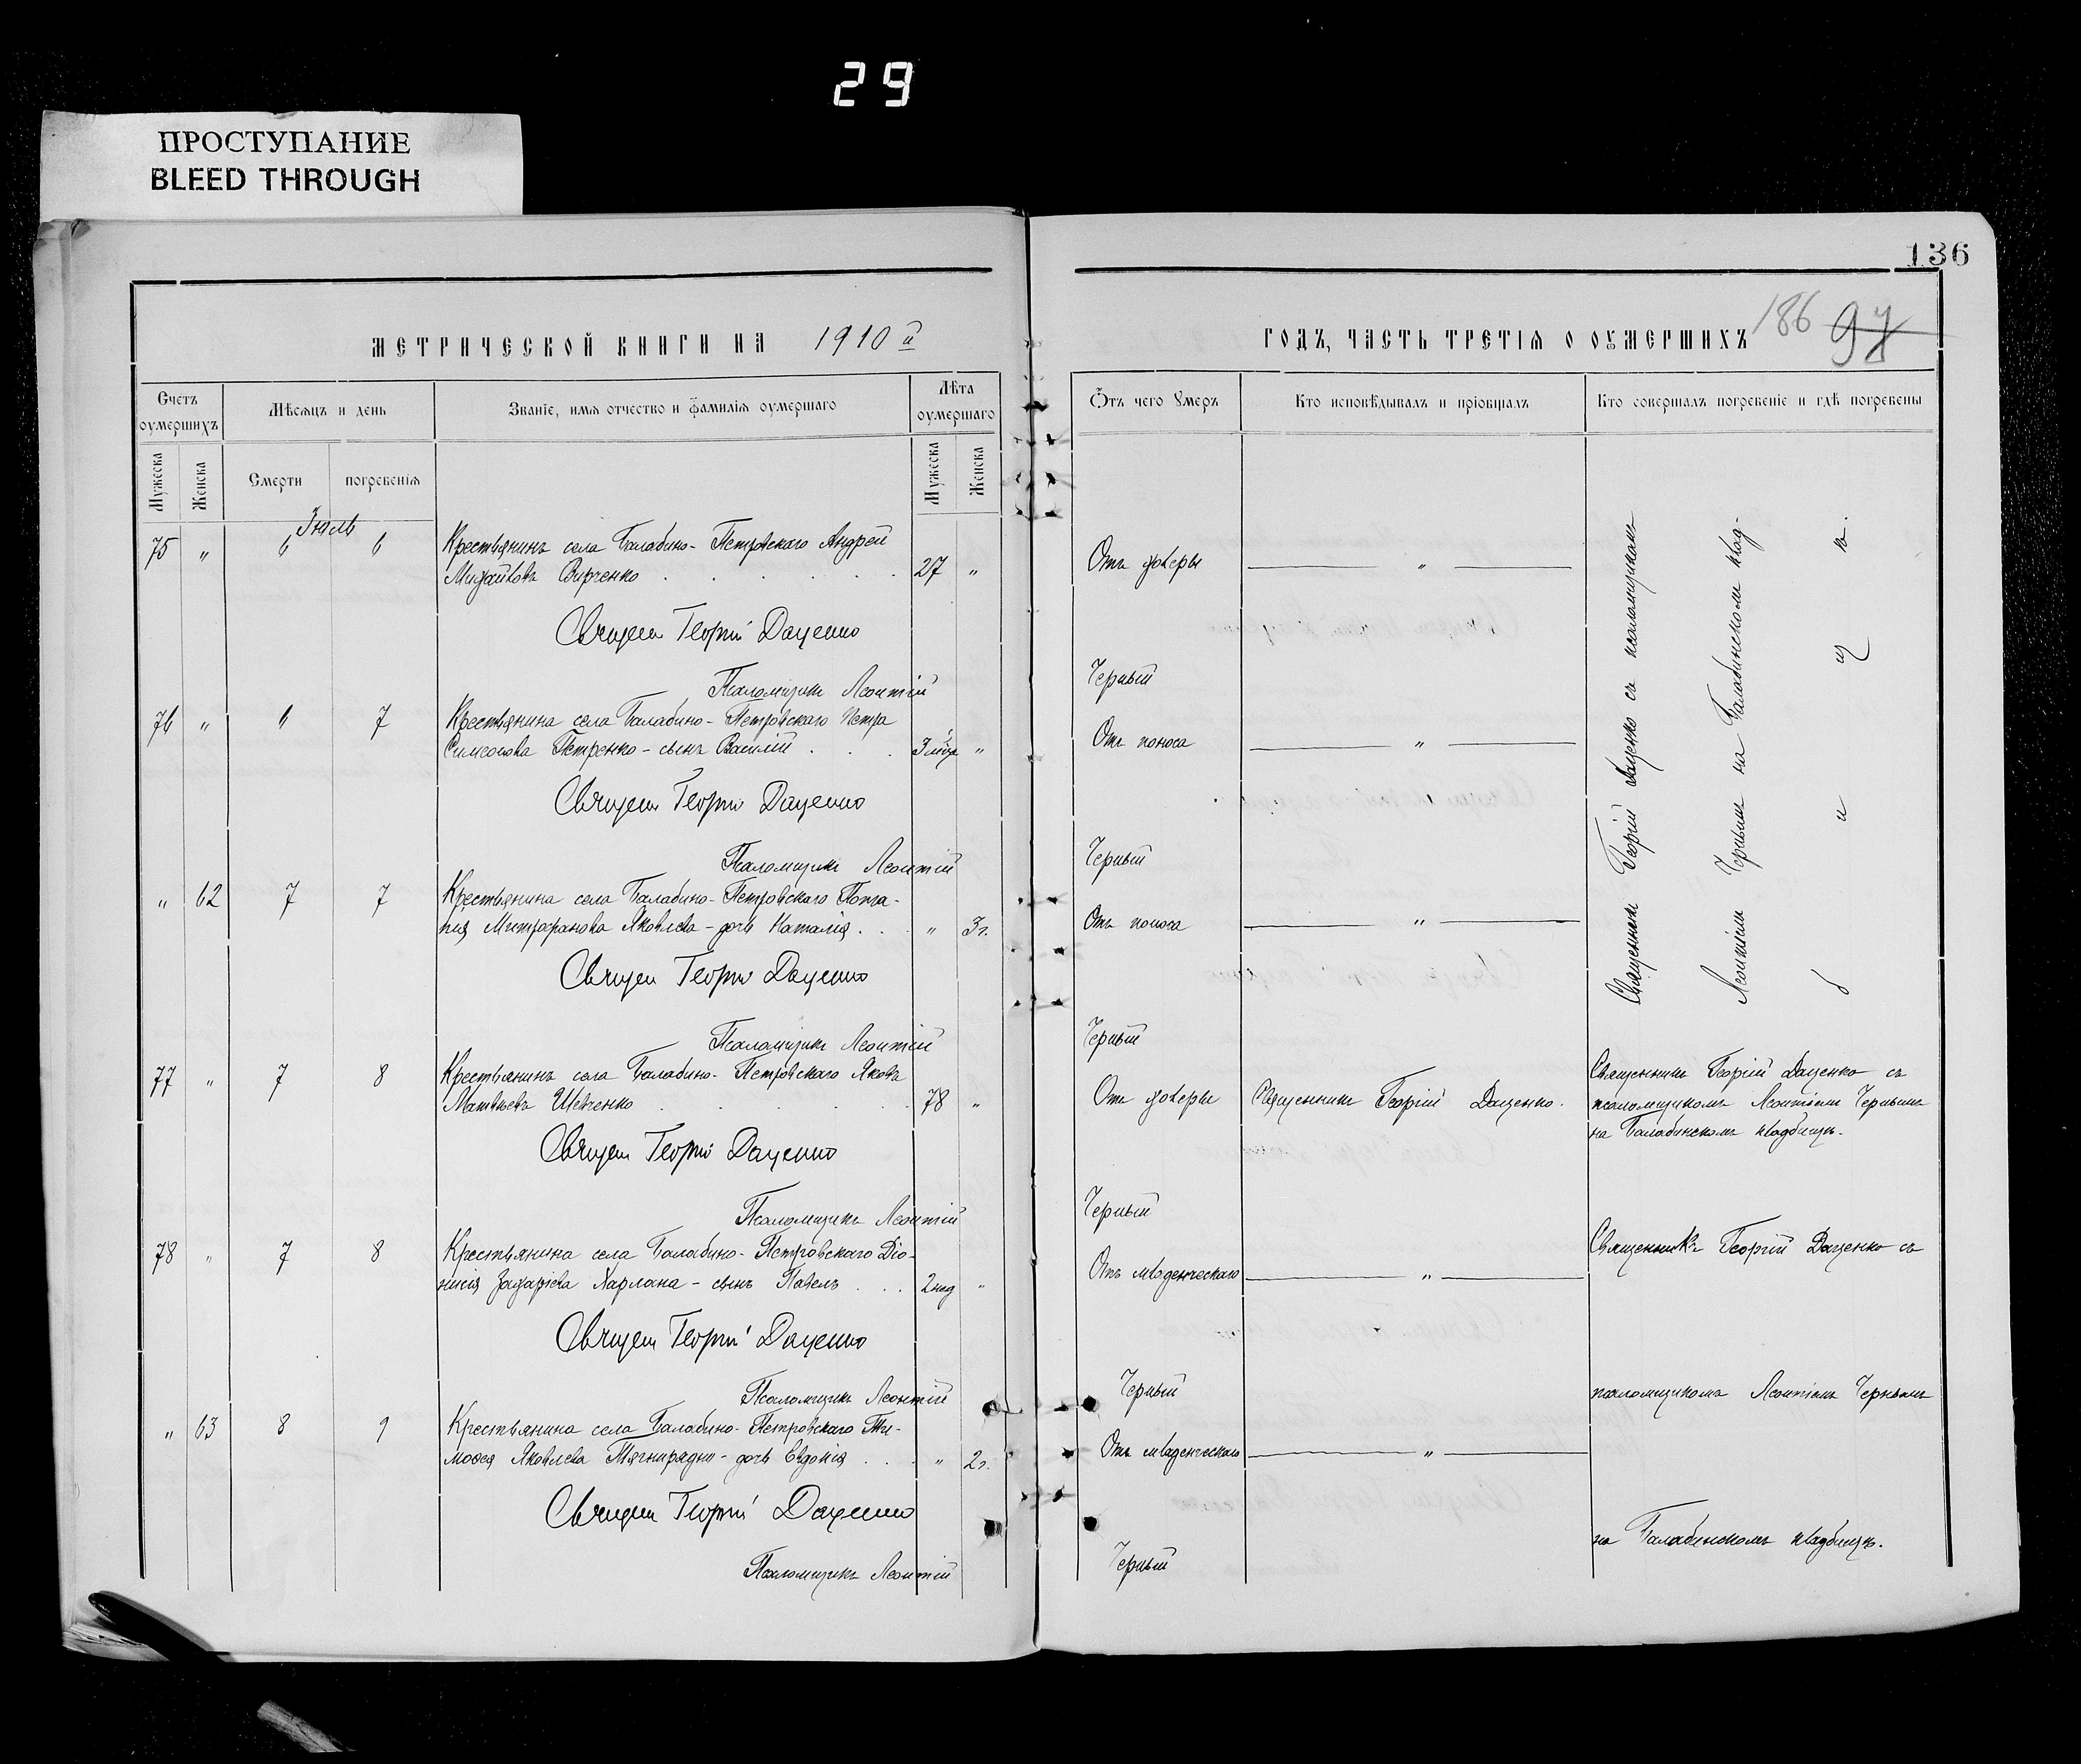 29
ПРОСТУПАНИЕ
BLEED THROUGH
136
МЕТРИЧЕСКОЙ КНИГИ НА 1910й
Счетъ оумершихъ
Мѣсяцъ и день
Званіе, имя отчество и фамилія оумершаго
Лѣта оумершаго
Мужеска
Женска
Смерти
погребенія
Мужеска
Женска
Іюль
75 " 6 6 Крестьянинъ села Балабино-Петровскаго Андрей
Михайловъ Сирченко 27 "
Священ Георгій Даценко
Псаломщикъ Леонтій
76 " 6 7 Крестьянина села Балабино-Петровскаго Петра
Симеонова Петренко - сынъ Василій 3 мѣс "
Священ Георгій Даценко
Псаломщикъ Леонтій
" 62 7 7 Крестьянина села Балабино-Петровскаго Пота-
пія Митрофанова Яковлева - дочь Наталія " 3 г.
Священ Георгій Даценко
Псаломщикъ Леонтій
77 " 7 8 Крестьянинъ села Балабино-Петровскаго Яковъ
Матвѣевъ Шевченко 78 "
Священ Георгій Даценко
Псаломщикъ Леонтій
78 " 7 8 Крестьянина села Балабино-Петровскаго Діо-
нисія Захаріева Харлана - сынъ Павелъ 2 нед "
Священ Георгій Даценко
Псаломщикъ Леонтій
" 63 8 9 Крестьянина села Балабино-Петровскаго Ти-
моѳея Яковлева - дочь Евдокія " 2 г.
Священ Георгій Даценко
Псаломщикъ Леонтій
ГОДЪ, ЧАСТЬ ТРЕТІЯ О ОУМЕРШИХЪ
186 97
Ѿтъ чего Умеръ
Кто исповѣдывалъ и пріобщалъ
Кто совершалъ погребеніе и гдѣ погребены
Отъ холеры "
Черный
Отъ поноса "
Черный
Отъ поноса "
Черный
Священникъ Георгій Даценко съ псаломщикомъ
Леонтіемъ Чернымъ на Балабинскомъ клад-
б и щ ѣ.
Отъ холеры Священникъ Георгій Даценко.
Священникъ Георгій Даценко съ
псаломщикомъ Леонтіемъ Чернымъ
на Балабинскомъ кладбищѣ.
Черный
Отъ младенческаго "
Священникъ Георгій Даценко съ
Черный
псаломщикомъ Леонтіемъ Чернымъ
Отъ младенческаго "
на Балабинскомъ кладбищѣ.
Черный